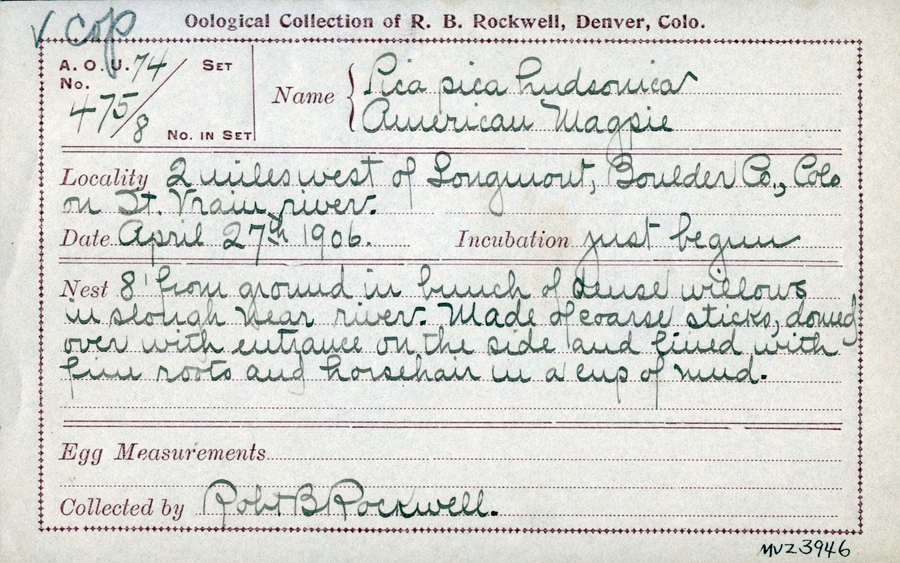 ✓ cop
Oological Collection of R. B. Rockwell, Denver, Colo.
A. O. U. 74/ Set
No.
475/8 No. in Set
Name { Pica pica hudsonica
American Magpie
Locality 2 miles west of Longmont, Boulder Co., Colo
on St. Vrain river.
Date April 27th 1906. Incubation just begun
Nest 8' from ground in bunch of dense willows
in slough near river. Made of coarse sticks, domed
over with entrance on the side and lined with
fine roots and horsehair in a cup of mud.
Egg Measurements
Collected by Robt B Rockwell.
MVZ 3946